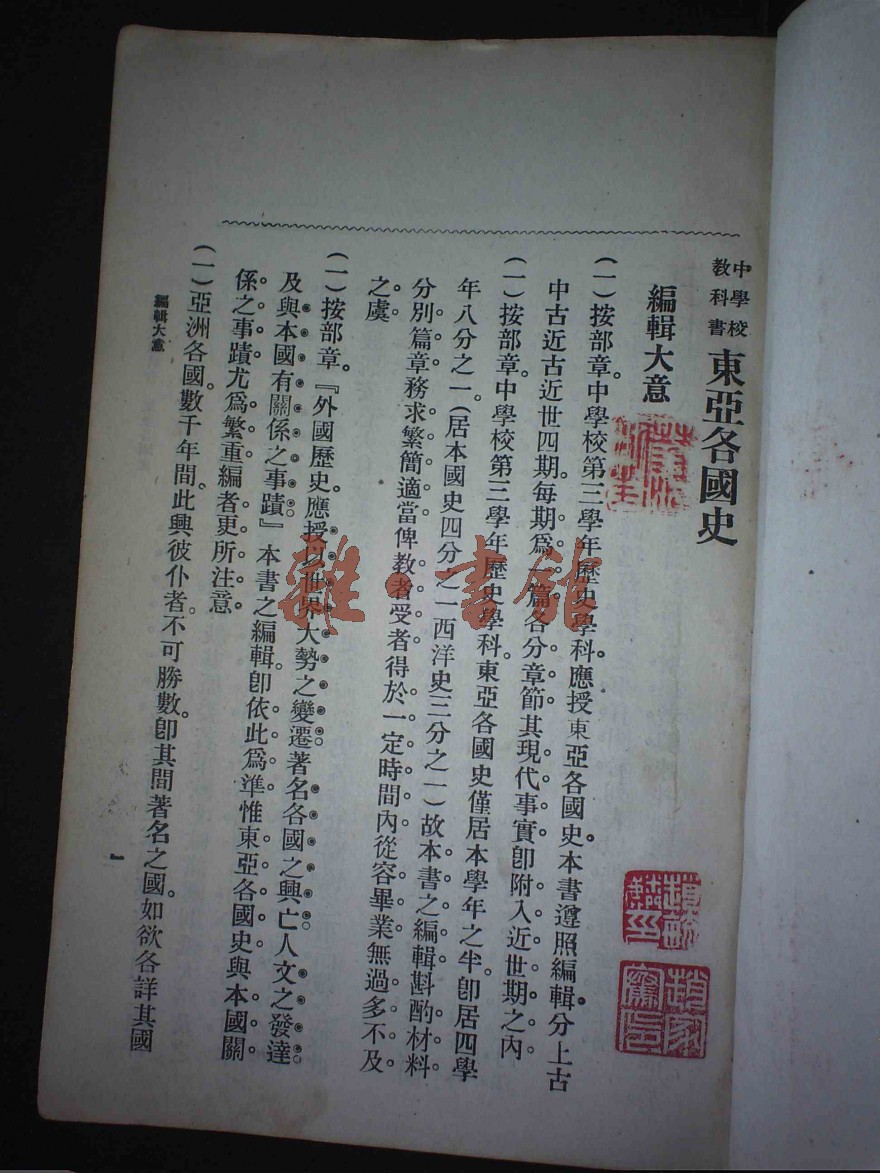 中學校
教科書
東亞各國史
編輯大意
(一)按部章。中學校第三學年歷史學科應授東亞各國史本書遵照編輯。分上古
中古近古近世四期每期爲一篇各分章節其現代事實卽附入近世期之內
(一)按部章中學校第三學年歷史學科。東亞各國史僅居本學年之半卽居四學
年八分之一。(居本國史四分之一西洋史三分之一)故本書之編輯斟酌材料
分別篇章務求繁簡適當俾教者受者得於一定時間內從容畢業無過多不及
之虞
(一)按部章。『外國歷史。應授以世界大勢之變遷著名各國之興亡人文之發達
及與本國有關係之事蹟』本書之編輯卽依此爲準惟東亞各國史與本國關
係之事蹟尤爲繁重編者更所注意
(一)亞洲各國。數千年間此興彼仆者。不可勝數。卽其間著名之國。如欲各詳其國
編輯大意
一
雜·書館